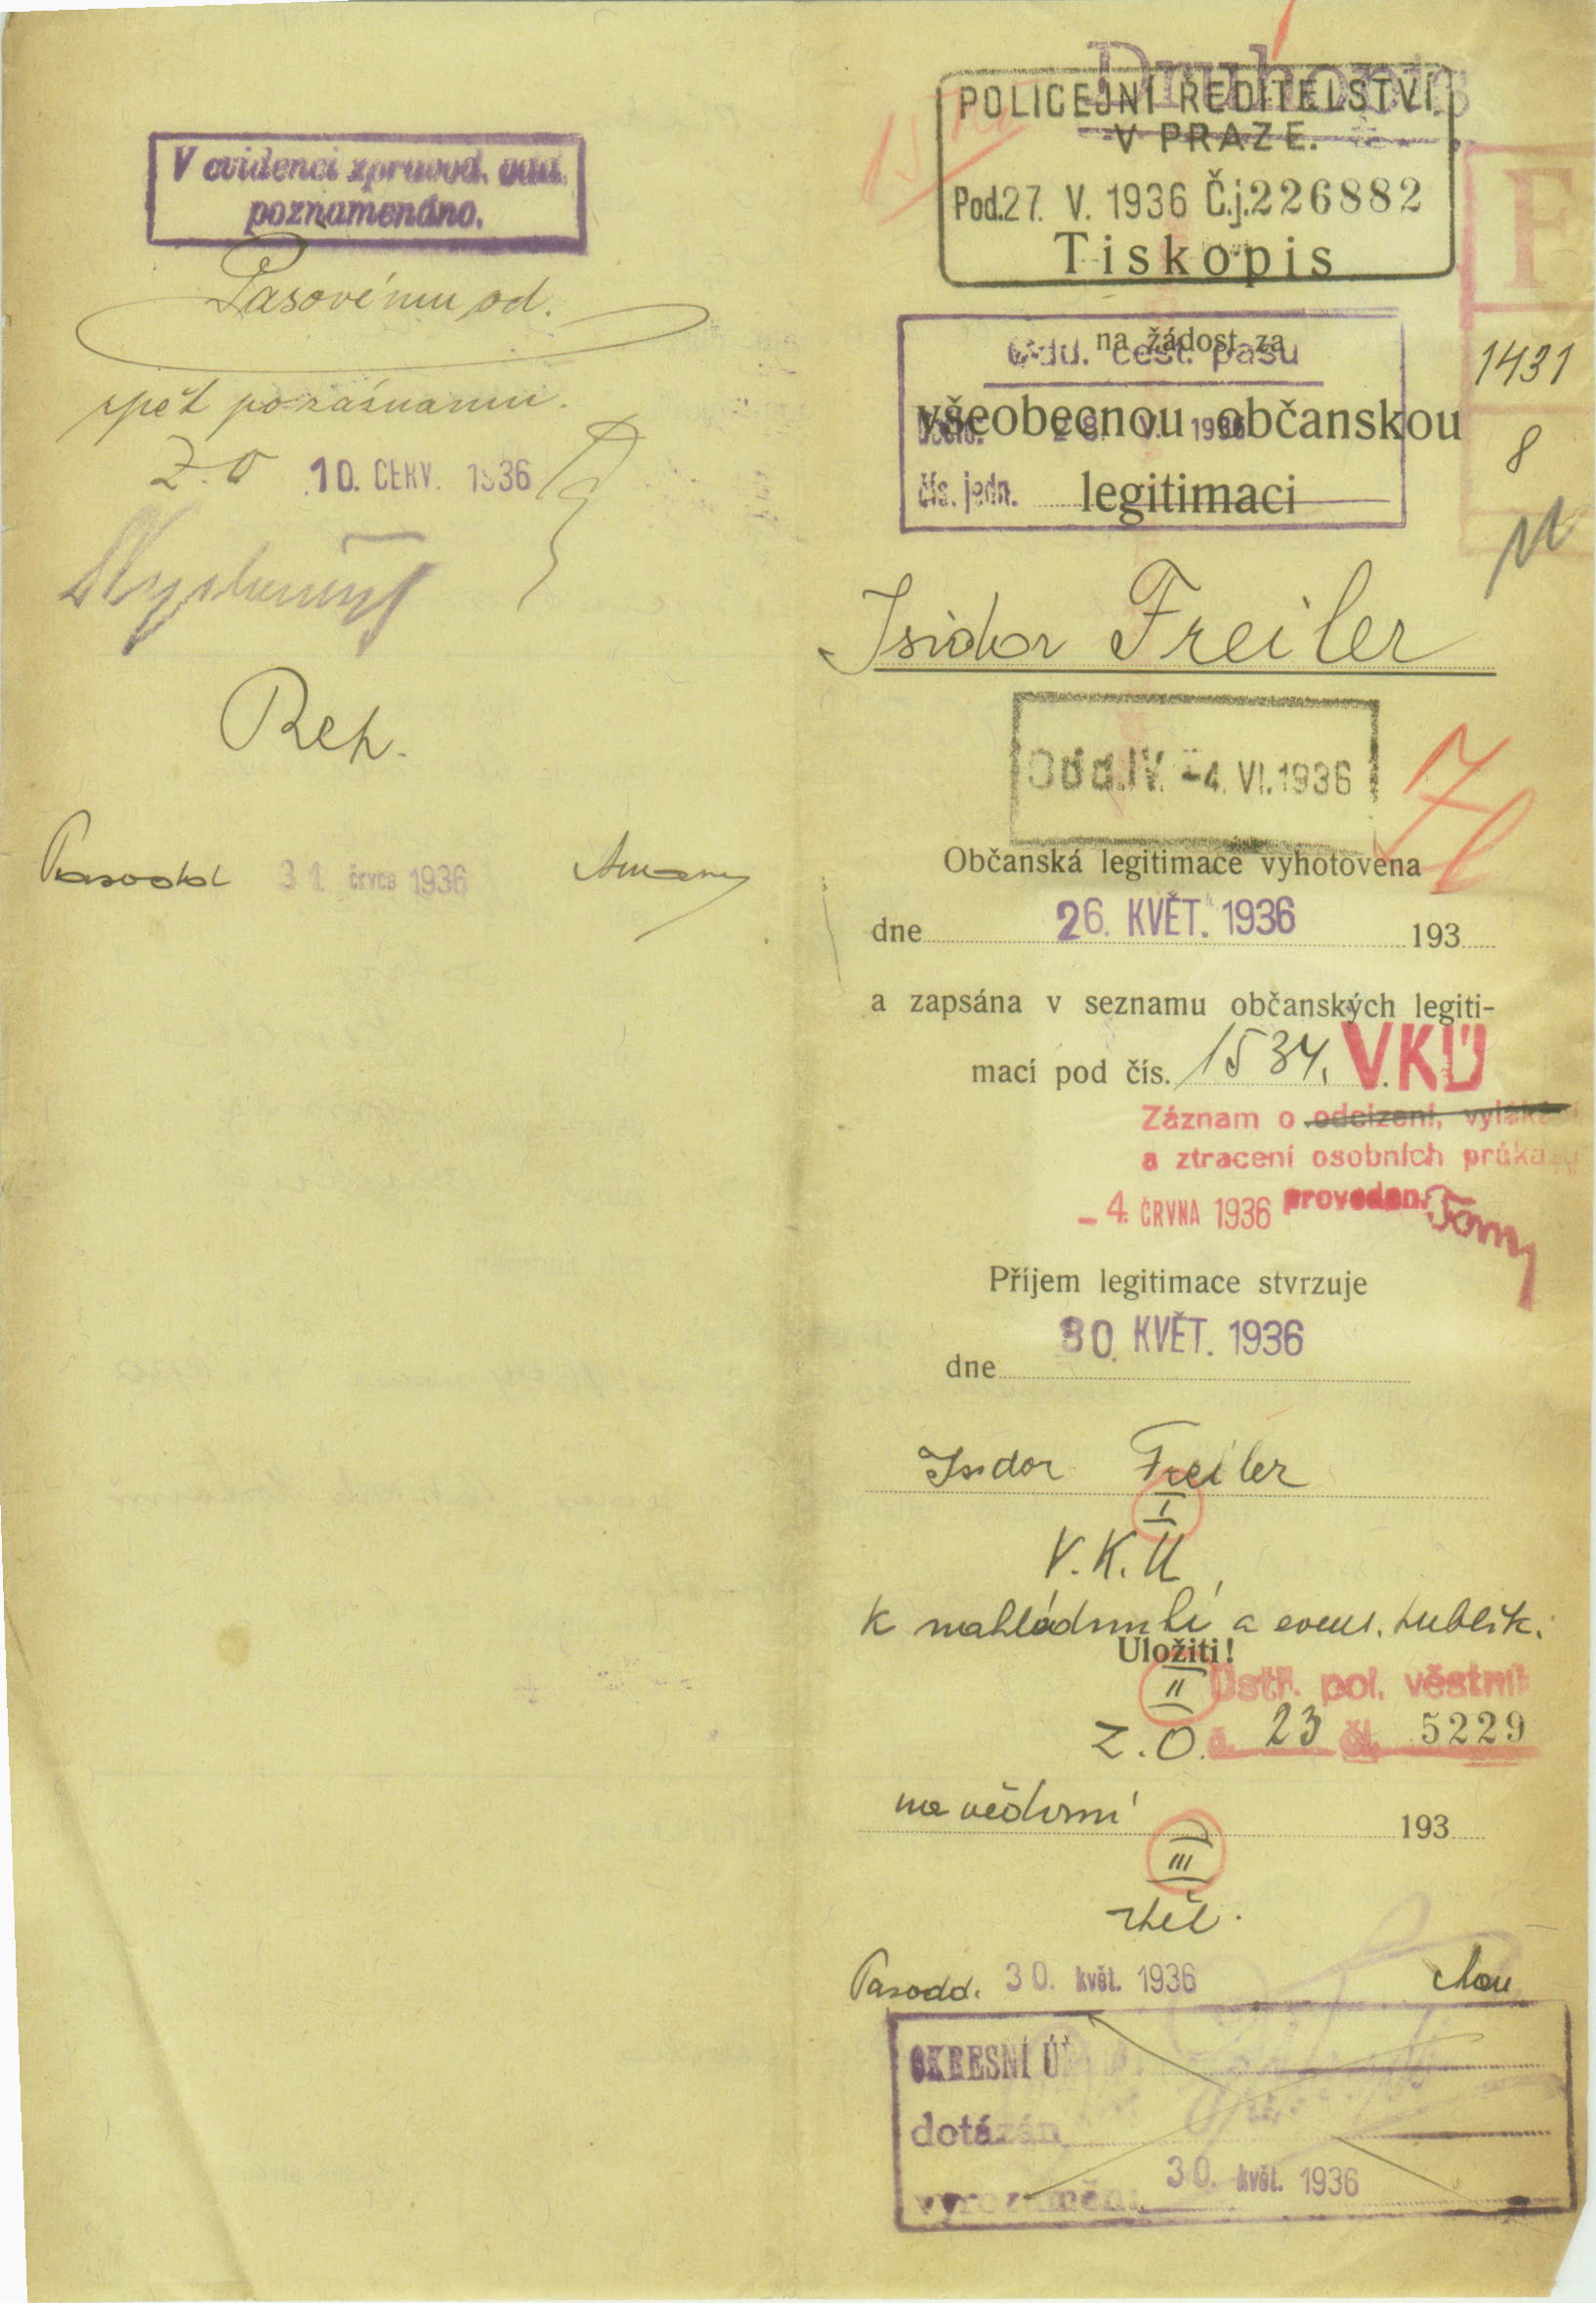 V evidenci zpravod. odd.
poznamenáno.
Pasovému od.
zpět po záznamu.
Z.O 10. ČERV. 1936
Reh.
Pasodd 31. června 1936
Druhopis
POLICEJNÍ ŘEDITELSTVÍ
V PRAZE.
Pod. 27. V. 1936 Č.j. 226882
F
Tiskopis
na žádost za
Odd. cest. pasů
1431
všeobecnou občanskou
Došlo: 28. V. 1936
8
čís. jedn.
legitimaci
Isidor Freiler
Odd. IV. -4. VI. 1936
Občanská legitimace vyhotovena
dne 26. KVĚT. 1936 193
a zapsána v seznamu občanských legiti-
mací pod čís. 1534. VKÚ
Záznam o odcizení, vyláká
a ztracení osobních průkazů
- 4. ČRVNA 1936 proveden.
Příjem legitimace stvrzuje
dne 30. KVĚT. 1936
Isidor Freiler
I
V.K.Ú
k nahlédnutí a event. publik.
Uložiti!
II Ústř. pol. věstník
Z.O. č. 23 čl. 5229
na vědomí 193
III
Pasodd. 30. květ. 1936
OKRESNÍ ÚŘ
dotázán
vyrozuměn: 30. květ. 1936